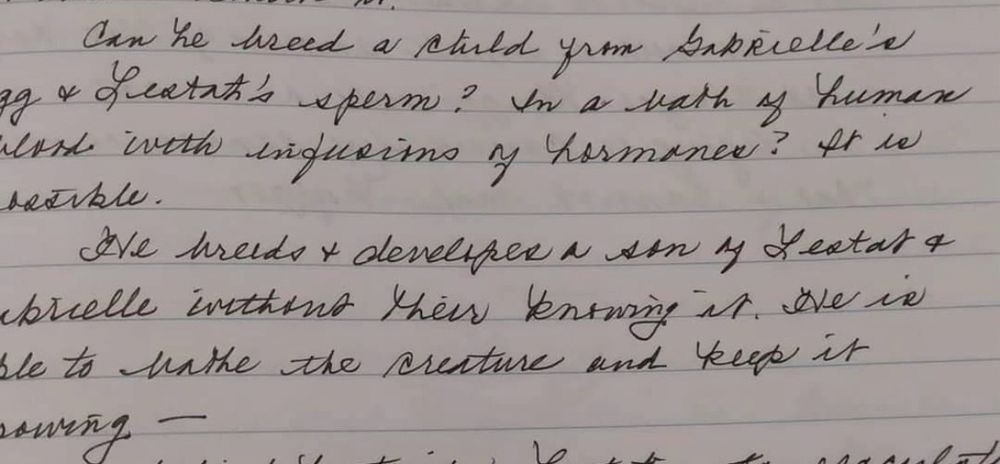 Can he breed a child from Gabrielle's
gg & Lestat's sperm? In a bath of human
blood with infusions of hormones? It is
ossible.
He breeds & developes a son of Lestat &
abrielle without their knowing it. He is
ble to bathe the creature and keep it
rowing —